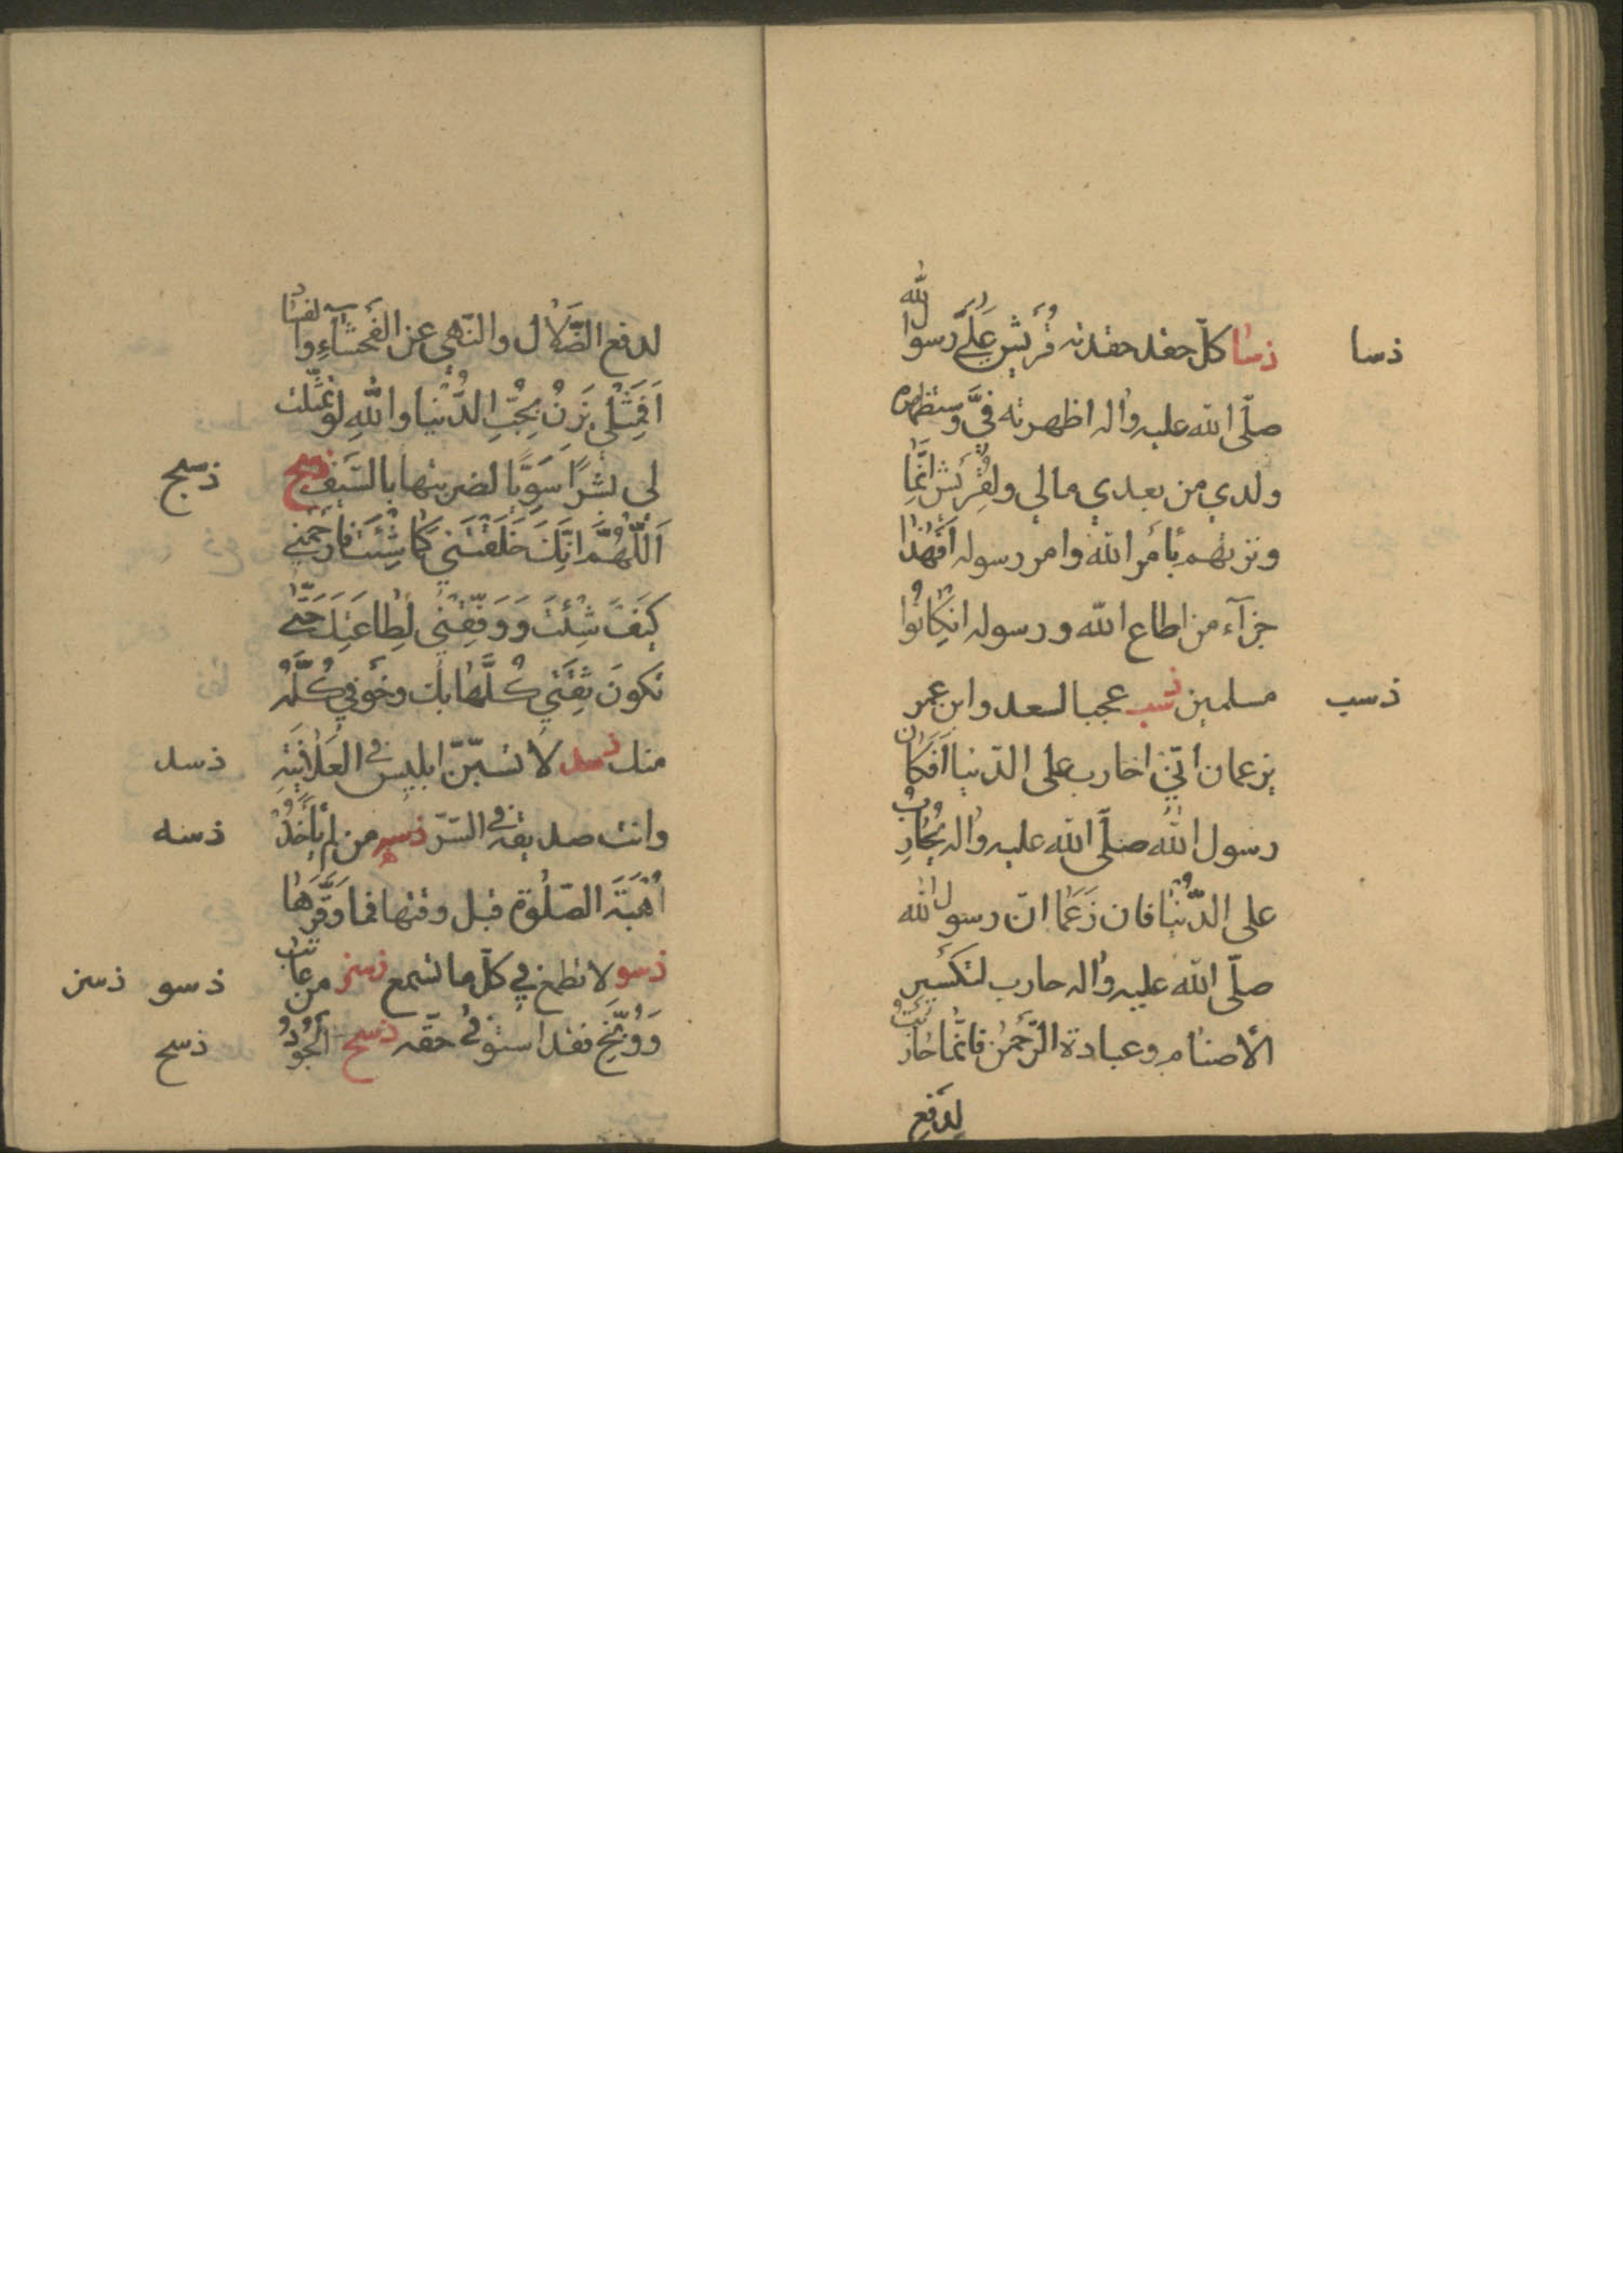 ذسا كلّ حقد حقدته قُرَيش عَلَى رسول الله ذسا
صلّى الله عليه واله اظهرته فيَّ وستظهره
ولدي من بعدي مالي ولقُرَيش انَّما
وترتهم بِأمَرِ الله وامر رسوله اَفَهٰذا
جزآء من اطاع الله ورسوله انكٰانُوا
مسلمين ذسب عجبا لسعد وابن عمر ذسب
يزعمان انّي احارب على الدّنيا اَفَكٰان
رسول الله صلّى الله عليه واله يُحٰارِبُ
على الدُّنْيا فان زَعَمٰا انّ رسول الله
صلّى الله عليه واله حارب لتكسيرِ
الأصنٰامِ وعبادة الرَّحمٰنِ فانَّما حٰارَبْتُ
لِدَفعِ
لدفع الضَّلاٰل والنّهى عن الفَحْشٰآءِ والفسٰاد
اَفَمِثْلي يُزَنُّ بِحُبِّ الدُّنْيا واللهِ لَوْ تمثّلت
لى بَشَراً سَوِيّاً لضربتها بالسَّيفِ ذسج ذسج
اَللّٰهُمَّ انَّكَ خَلَقْتَنى كَمٰا شِئْتَ فَارْحَمْني
كيَفَ شِئْتَ وَوَفِّقْنى لِطٰاعَتِكَ حَتّٰى
تكونَ ثِقَتي كُلُّهٰا بك وخَوْفي كُلُّهُ
منك ذسد لاٰ تسبّنّ ابليس في العَلاٰنِيَةِ ذسد
وانت صديقه في السّرّ ذسه من لم يَأخُذْ ذسه
اُهْبَةَ الصّلٰوة قبل وقتها فما وَقَّرَهٰا
ذسو لا تطمع في كلّ ما تسمع ذسز من عٰاتَبَ ذسو ذسز
وَوَبَّخَ فقد استوفى حقّه ذسح اَلْجُوْدُ ذسح